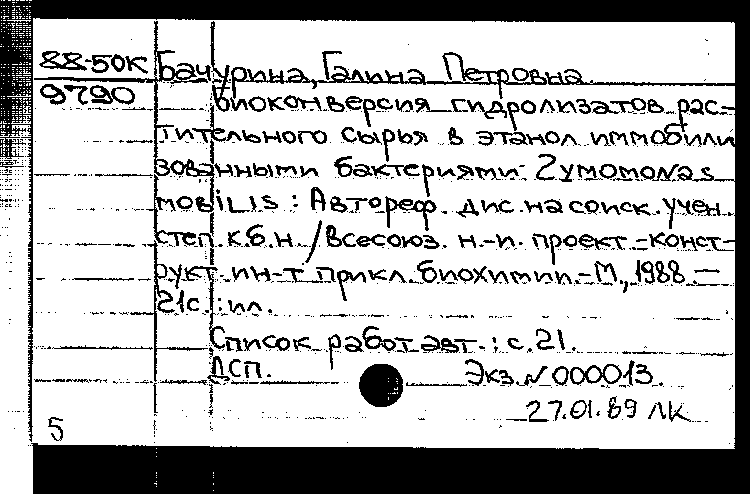 88-50К Бачурина, Галина Петровна.
9790 Биоконверсия гидролизатов рас-
тительного сырья в этанол иммобили
зованными бактериями Zymomonas
mobilis : Автореф. дис. на соиск. учен.
степ. к.б.н. / Всесоюз. н.-и. проект.-конст-
рукт. ин-т прикл. биохимии.-М., 1988.—
21с. : ил.
Список работ авт.: с. 21.
ДСП. Экз. N 000013.
27.01.89 ЛК
5